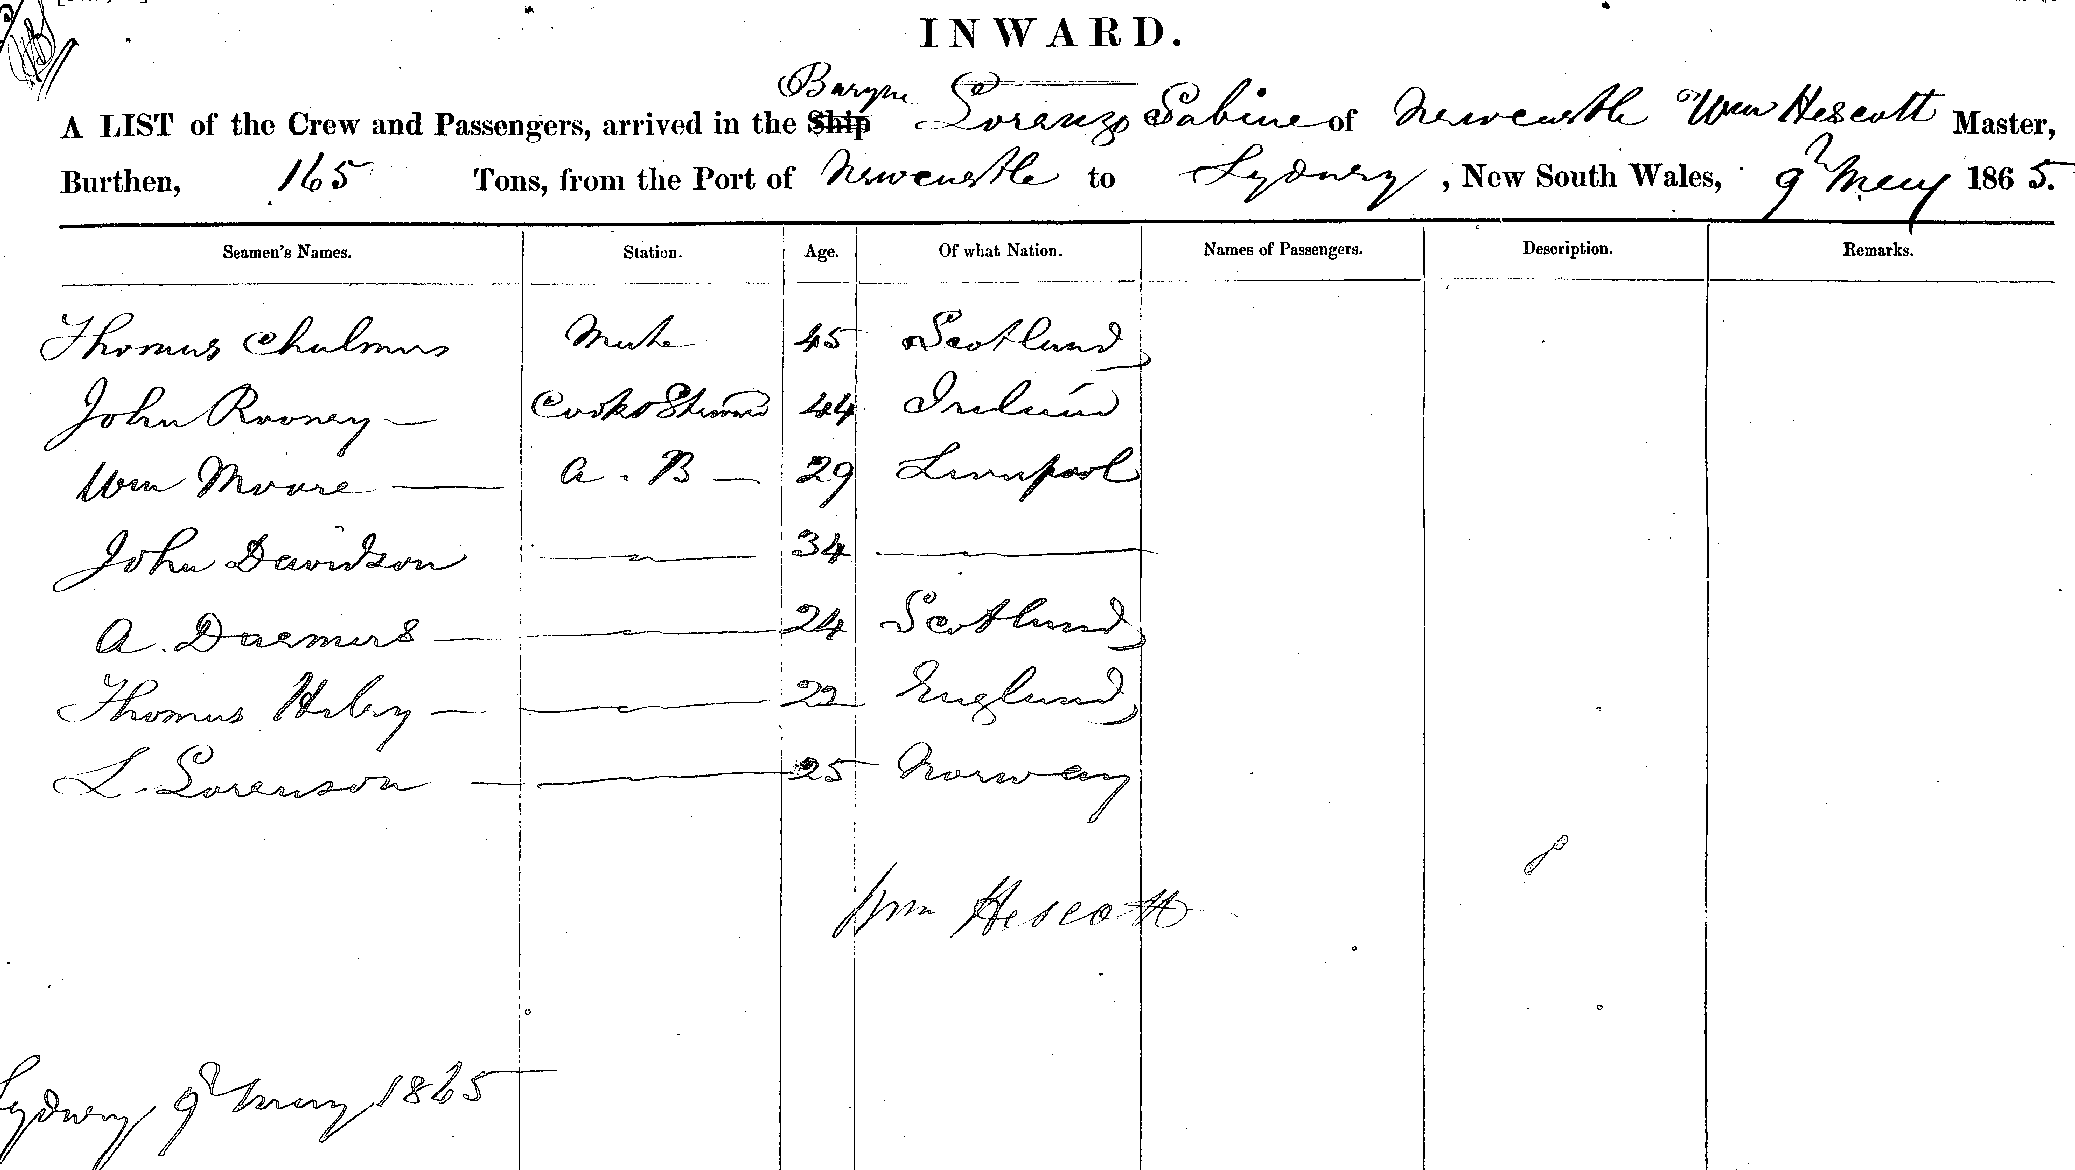 INWARD.
Barque
A LIST of the Crew and Passengers, arrived in the Ship Lorenzo Sabine of Newcastle Wm Hescott Master,
Burthen, 165 Tons, from the Port of Newcastle to Sydney, New South Wales, 9th May 1865.
Seamen's Names. Station. Age. Of what Nation. Names of Passengers. Description. Remarks.
Thomas Chalmers Mate 45 Scotland
John Rooney — Cook & Steward 44 Ireland
Wm Moore — A. B — 29 Liverpool
John Davidson — 34 —
A. — 24 Scotland
Thomas — 22 England
L. Sorenson — 25 Norway
Wm Hescott
Sydney 9th May 1865